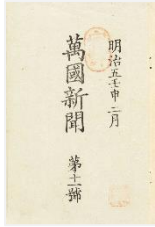 明治五壬申二月
萬國新聞
第十一號